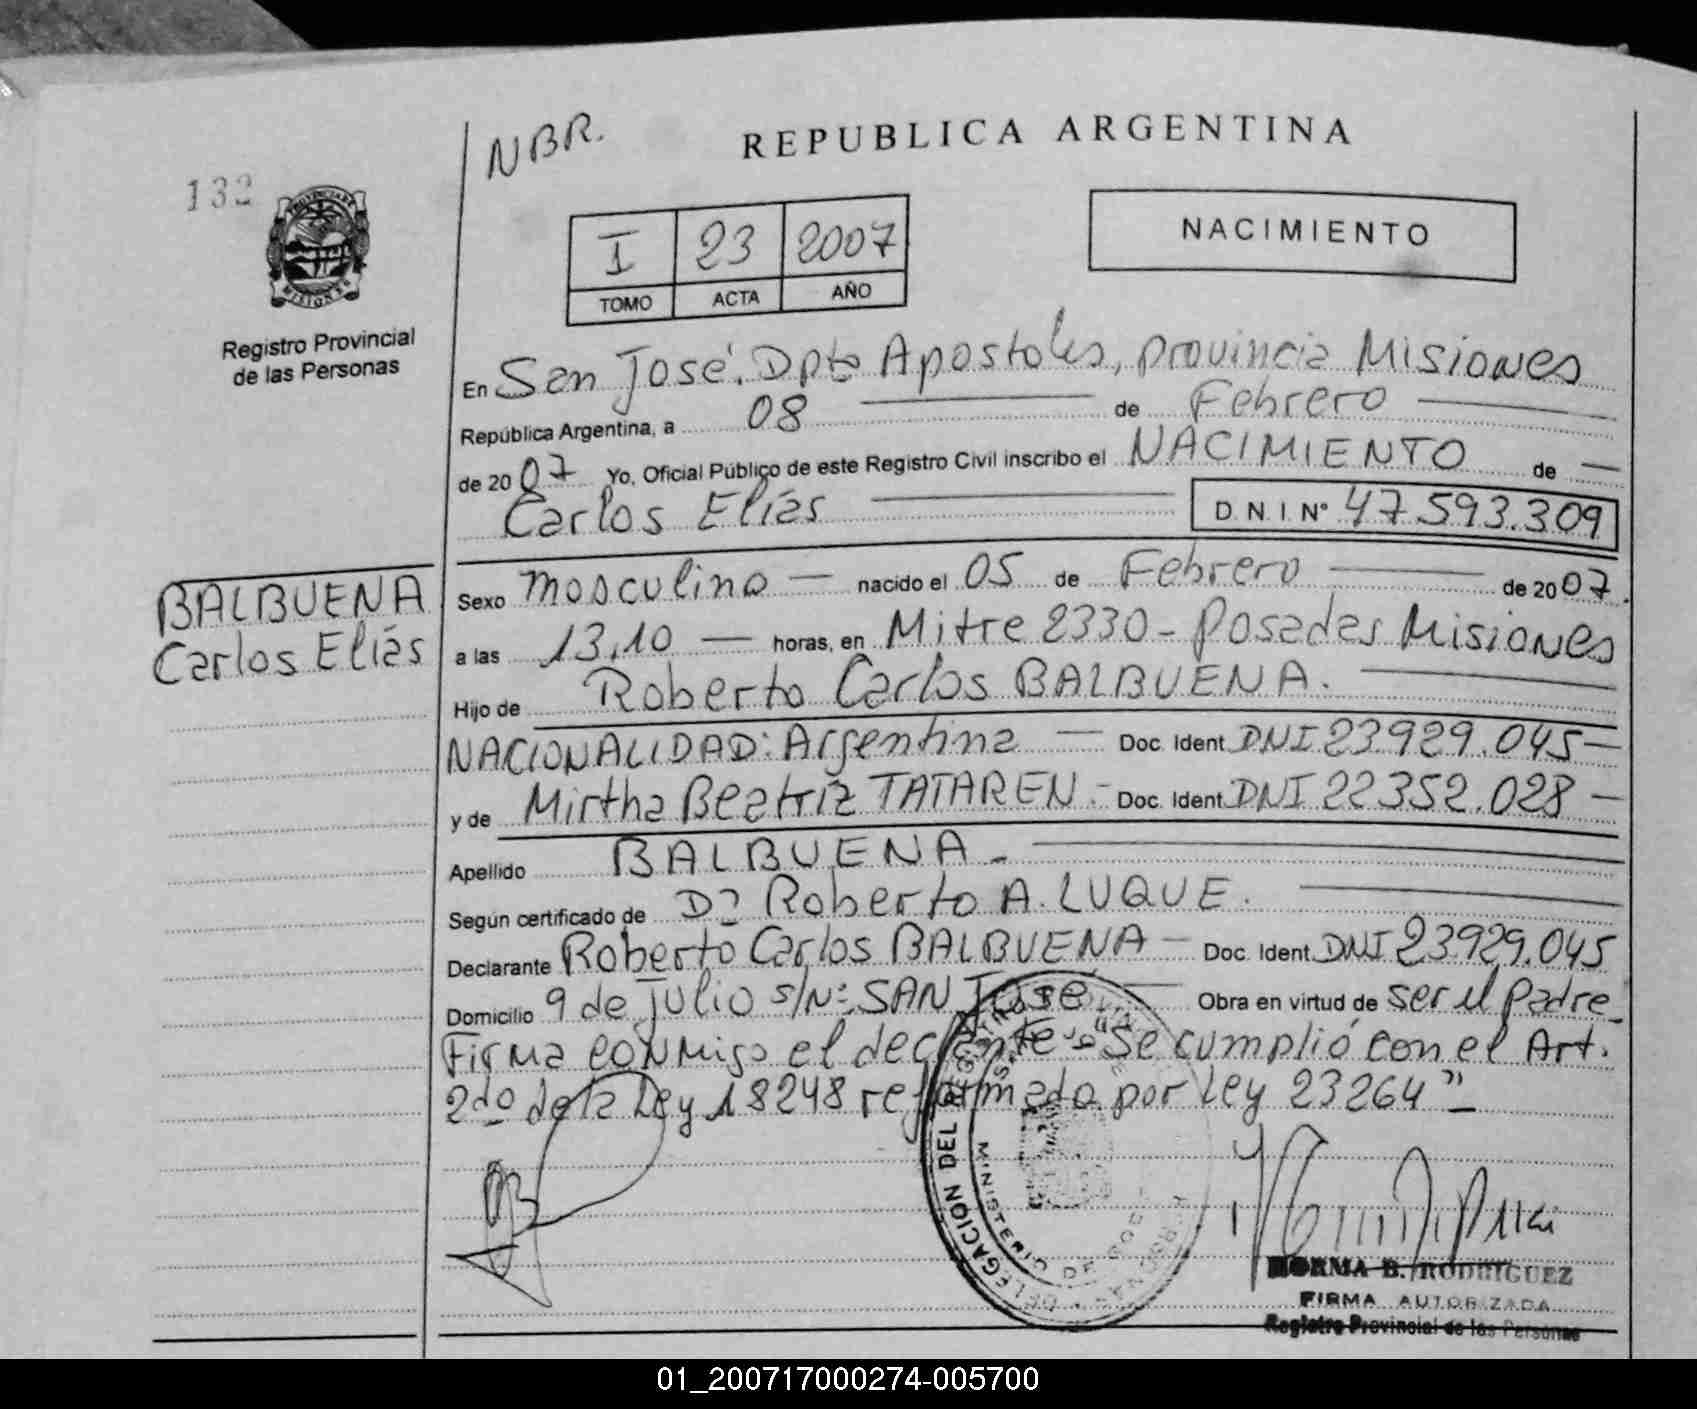 NBR.
REPUBLICA ARGENTINA
132
PROVINCIA DE
MISIONES
Registro Provincial
de las Personas
I 23 2007
TOMO ACTA AÑO
NACIMIENTO
En San José. Dpto Apostoles, provincia Misiones
República Argentina, a 08 de Febrero
de 2007 Yo, Oficial Público de este Registro Civil inscribo el NACIMIENTO de
Carlos Elías D.N.I. N° 47.593.309
BALBUENA
Carlos Elías
Sexo masculino nacido el 05 de Febrero de 2007.
a las 13,10 horas, en Mitre 2330 - Posadas Misiones
Hijo de Roberto Carlos BALBUENA.
NACIONALIDAD: Argentina Doc. Ident DNI 23.929.045
y de Mirtha Beatriz TATAREN.- Doc. Ident DNI 22352.028
Apellido BALBUENA -
Según certificado de Dr Roberto A. LUQUE.
Declarante Roberto Carlos BALBUENA Doc. Ident DNI 23.929.045
Domicilio 9 de Julio s/N: SAN José Obra en virtud de ser el padre
Firma conmigo el decl "Se cumplió con el Art.
2do de la Ley 18248 reformado por Ley 23264"
DELEGACION DEL REGISTRO
MINISTERIO DE
NORMA B. RODRIGUEZ
FIRMA AUTORIZADA
Registro Provincial de las Personas
01_200717000274-005700